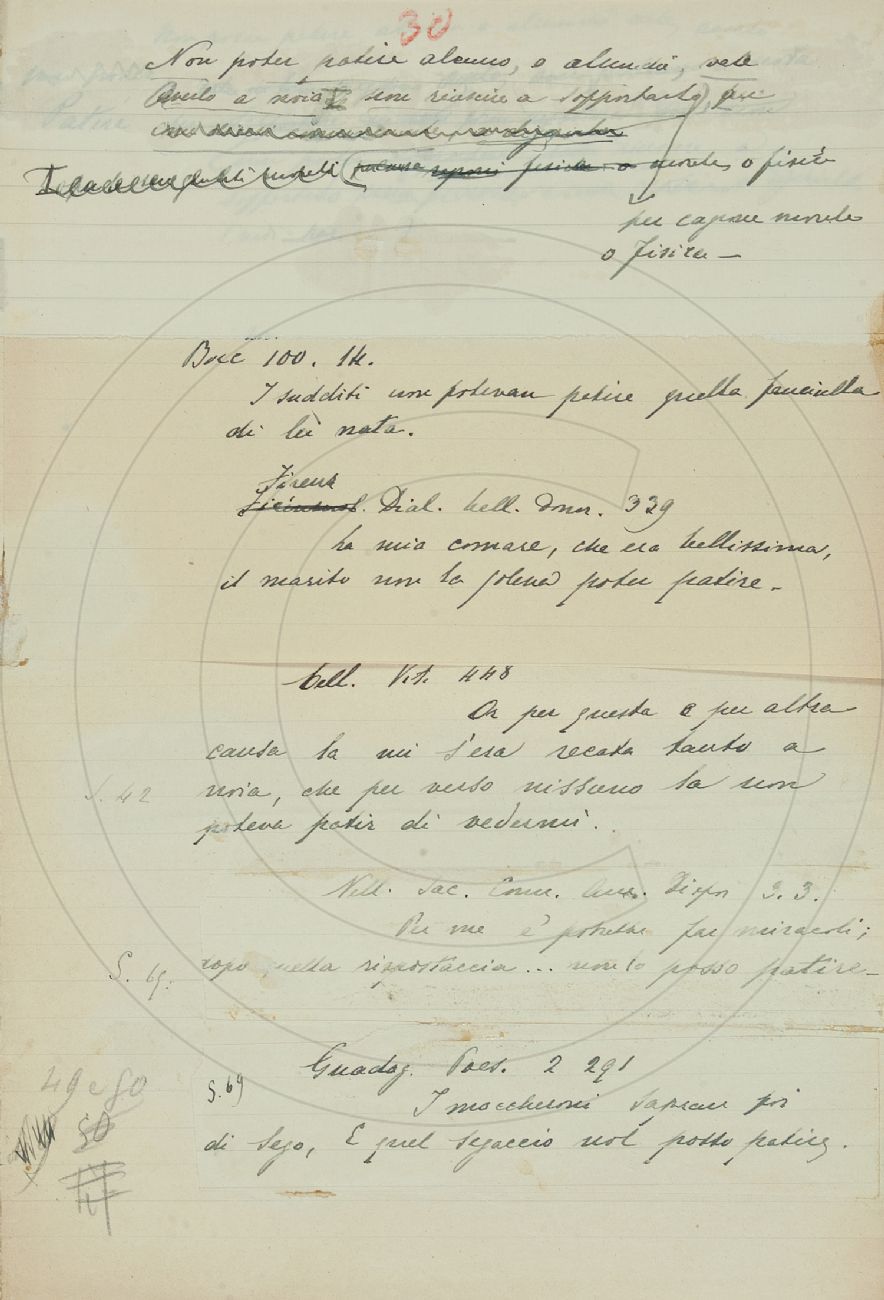 30
Non poter patire alcuno, o alcuna, vale
Averlo a noia, non riuscire a sopportarlo, per
morale, o fisica
per cagione morale
o fisica —
Bocc 100. 14.
I sudditi non potevan patire quella fanciulla
di lei nata.
Firenz
Dial. bell. donn. 339
La mia comare, che era bellissima,
il marito non la poteva poter patire.
Cell. Vit. 448
Or per questa e per altra
causa la mi s'era recata tanto a
S. 42
noia, che per verso nissuno la non
poteva patir di vedermi.
Nell. Jac. Com. 3. 3.
Per me e' potrebbe far miracoli;
dopo quella rispostaccia... non lo posso patire.
S. 69.
Guadag. Poes. 2 291
S. 69
I maccheroni sapean poi
di sego, E quel segaccio nol posso patire.
49 e 50
50